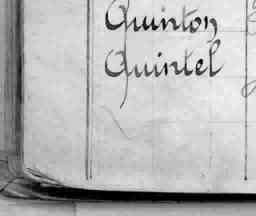 Quinton
Quintel